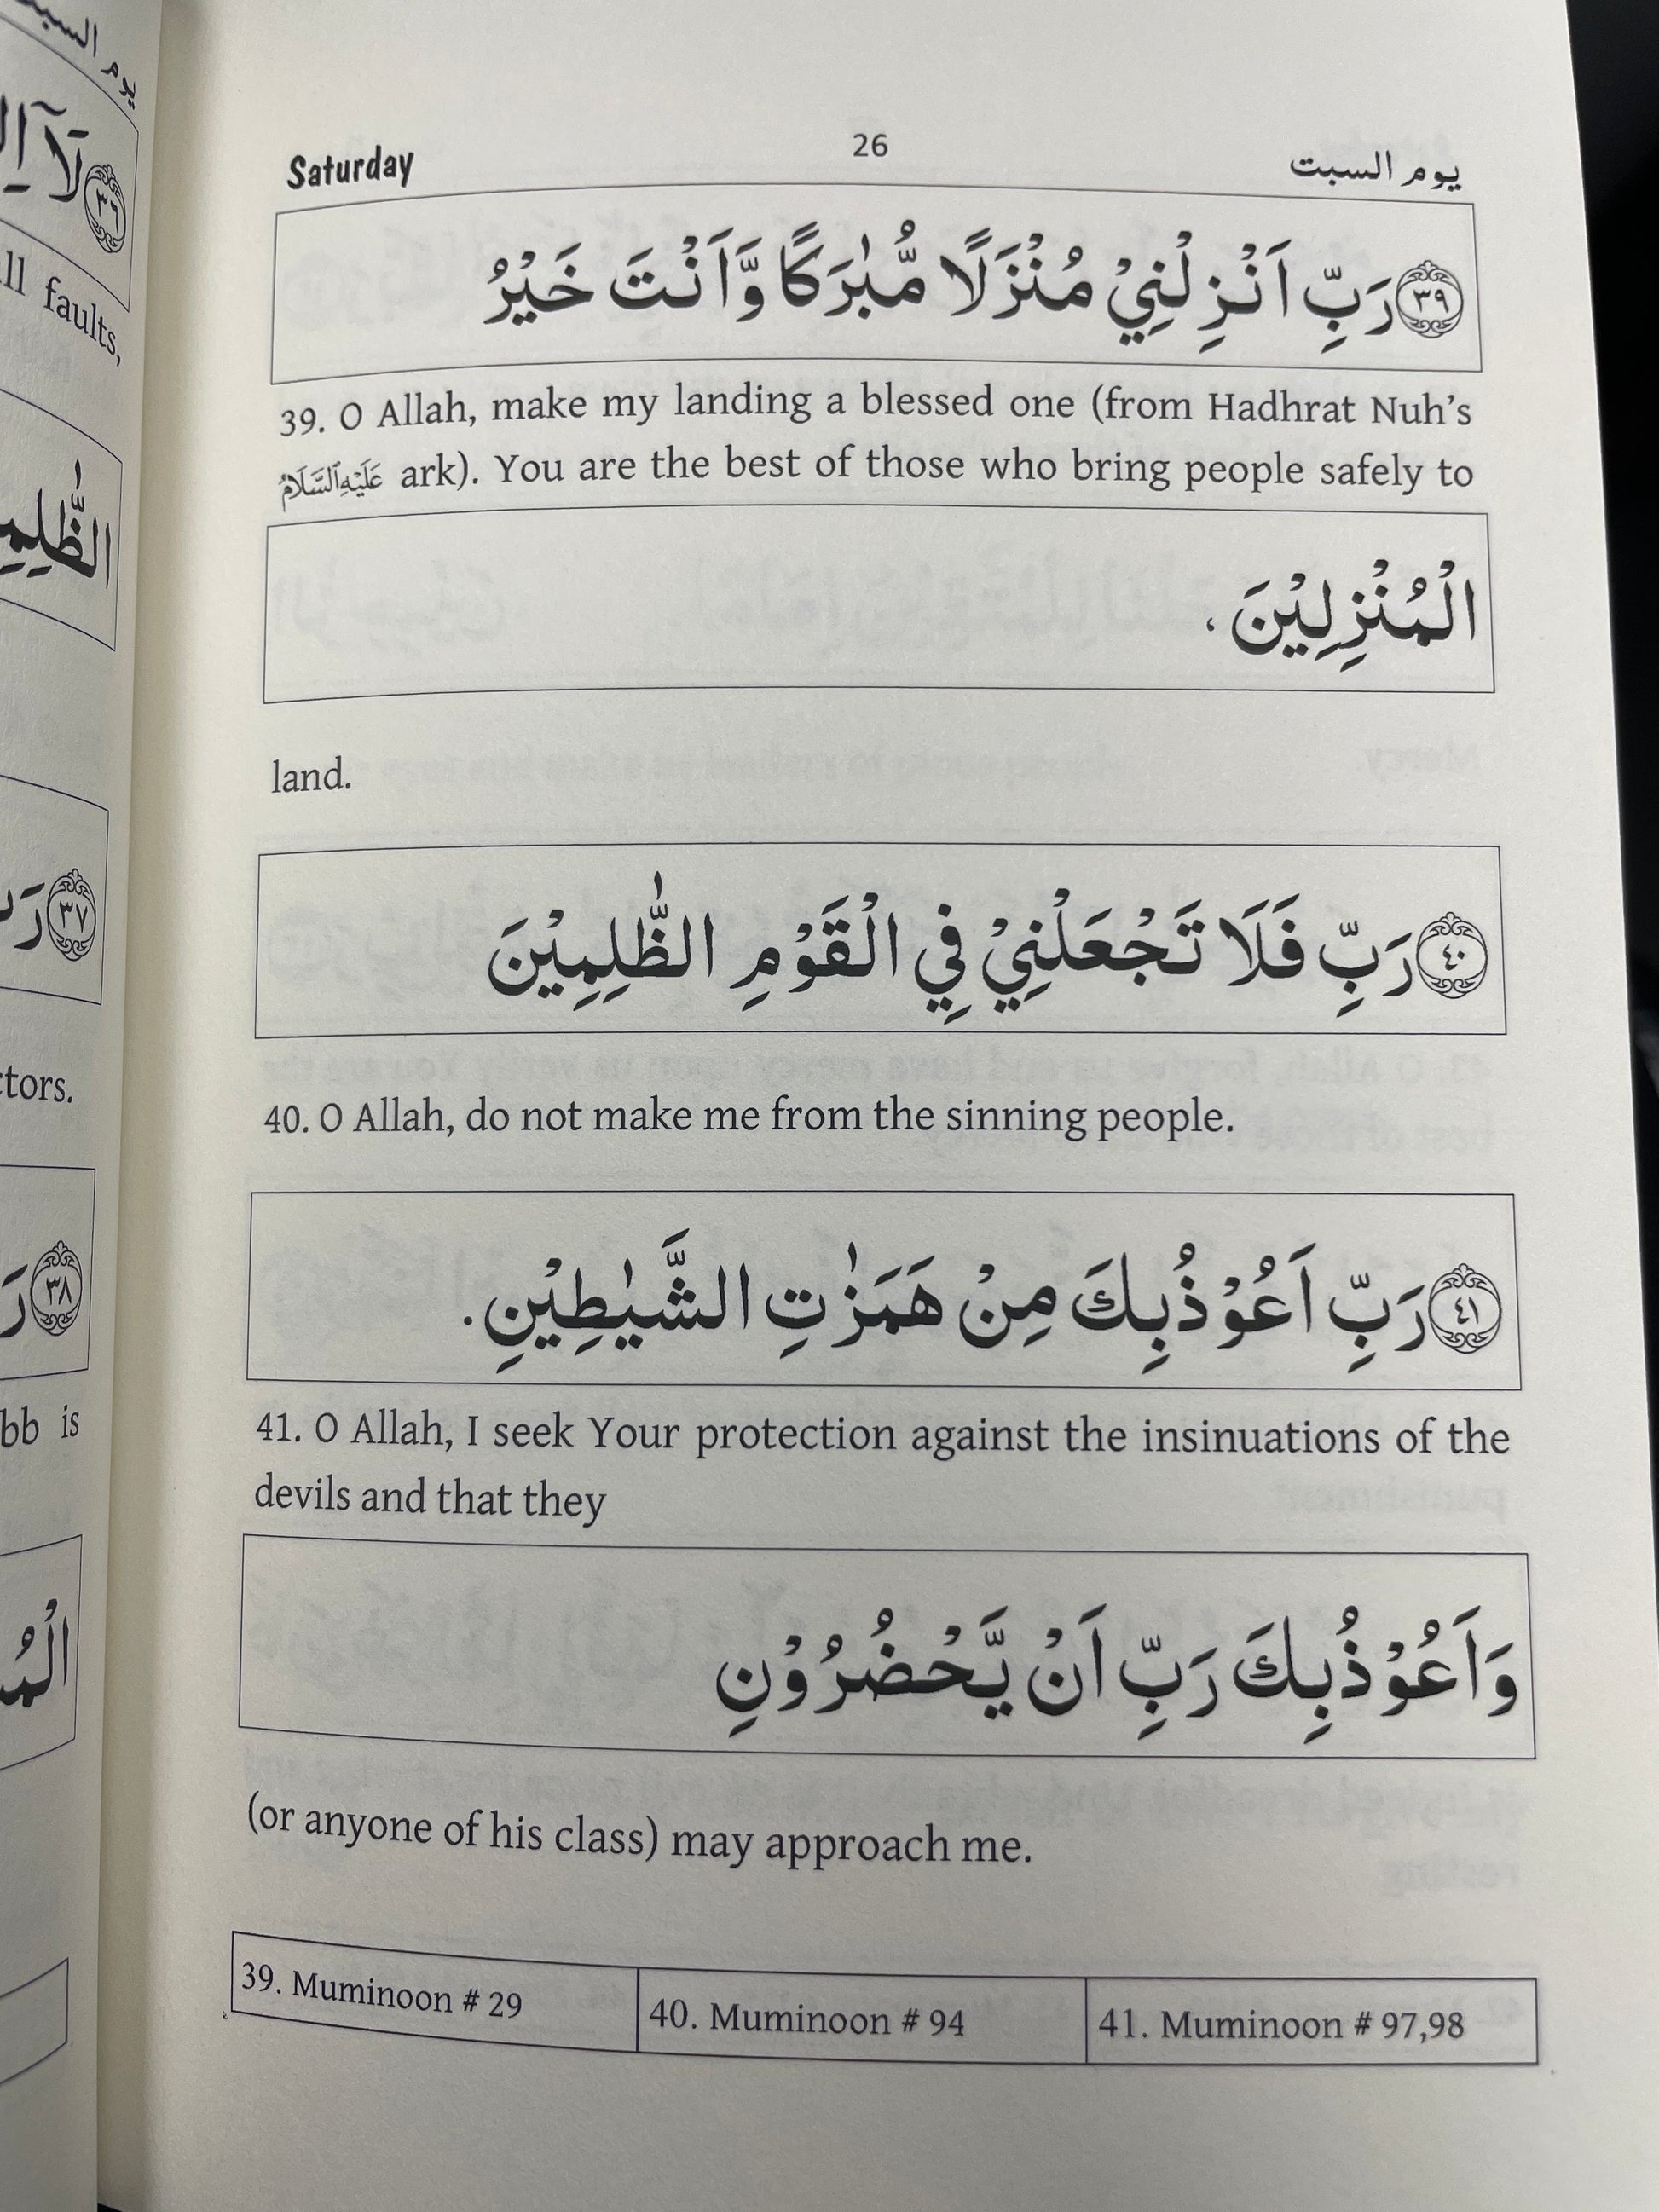 Saturday 26 يوم السبت
٣٩ رَبِّ اَنْزِلْنِيْ مُنْزَلًا مُّبٰرَكًا وَّاَنْتَ خَيْرُ
39. O Allah, make my landing a blessed one (from Hadhrat Nuh's
عَلَيْهِ السَّلَامُ ark). You are the best of those who bring people safely to
الْمُنْزِلِيْنَ ،
land.
٤٠ رَبِّ فَلَا تَجْعَلْنِيْ فِي الْقَوْمِ الظّٰلِمِيْنَ
40. O Allah, do not make me from the sinning people.
٤١ رَبِّ اَعُوْذُبِكَ مِنْ هَمَزٰتِ الشَّيٰطِيْنِ.
41. O Allah, I seek Your protection against the insinuations of the
devils and that they
وَاَعُوْذُبِكَ رَبِّ اَنْ يَّحْضُرُوْنِ
(or anyone of his class) may approach me.
39. Muminoon # 29 40. Muminoon # 94 41. Muminoon # 97,98
يوم
٣٦
faults,
٣٧
٣٨
is